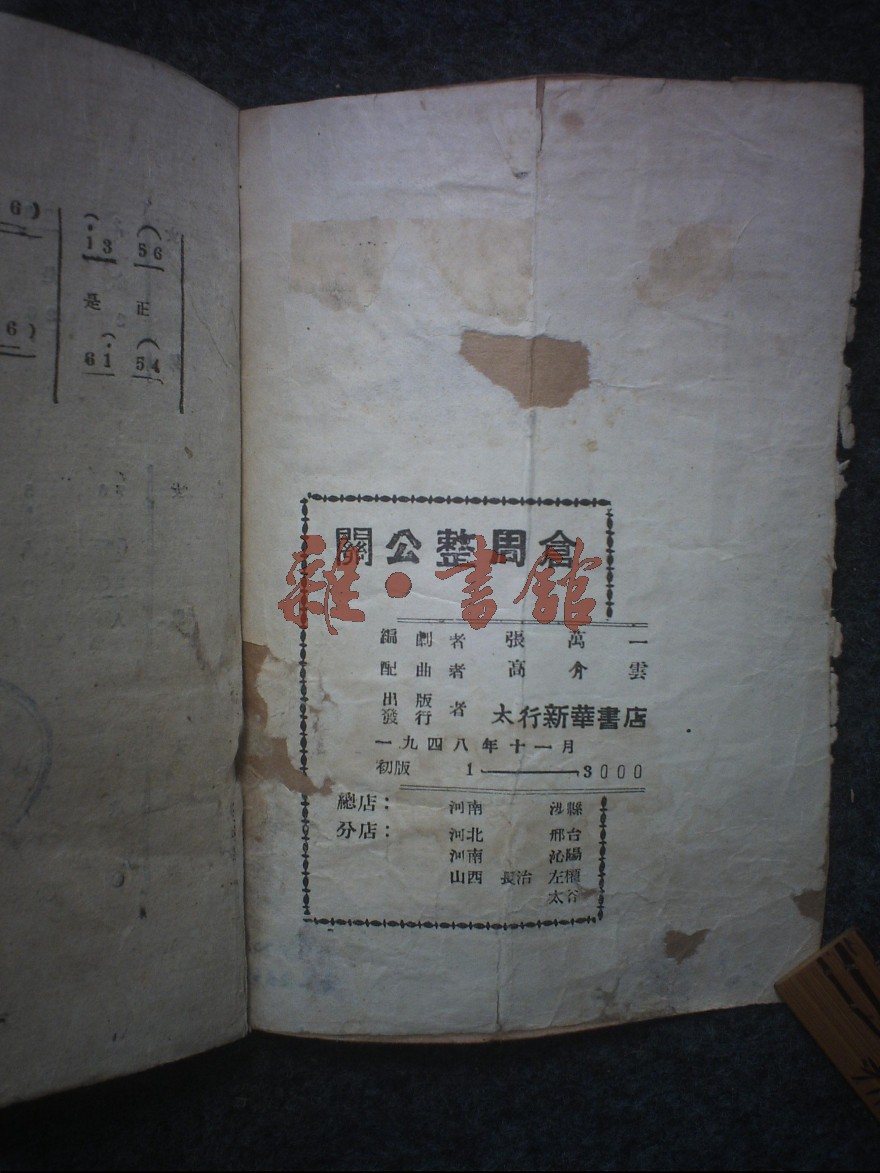 6)
1 3 5 6
是 正
6)
6 1 5 4
關公整周倉
雜·書館
編劇者 張萬一
配曲者 高介雲
出版
發行 者 太行新華書店
一九四八年十一月
初版 1——3000
總店： 河南 涉縣
分店： 河北 邢台
河南 沁陽
山西 長治 左權
太谷